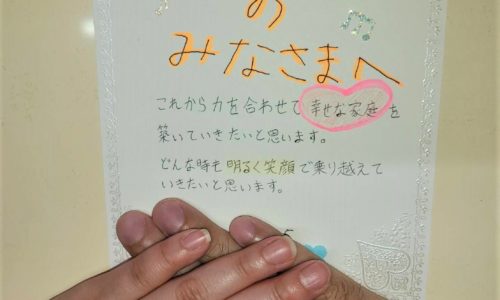 の
みなさまへ
これから力を合わせて幸せな家庭を
築いていきたいと思います。
どんな時も明るく笑顔で乗り越えて
いきたいと思います。